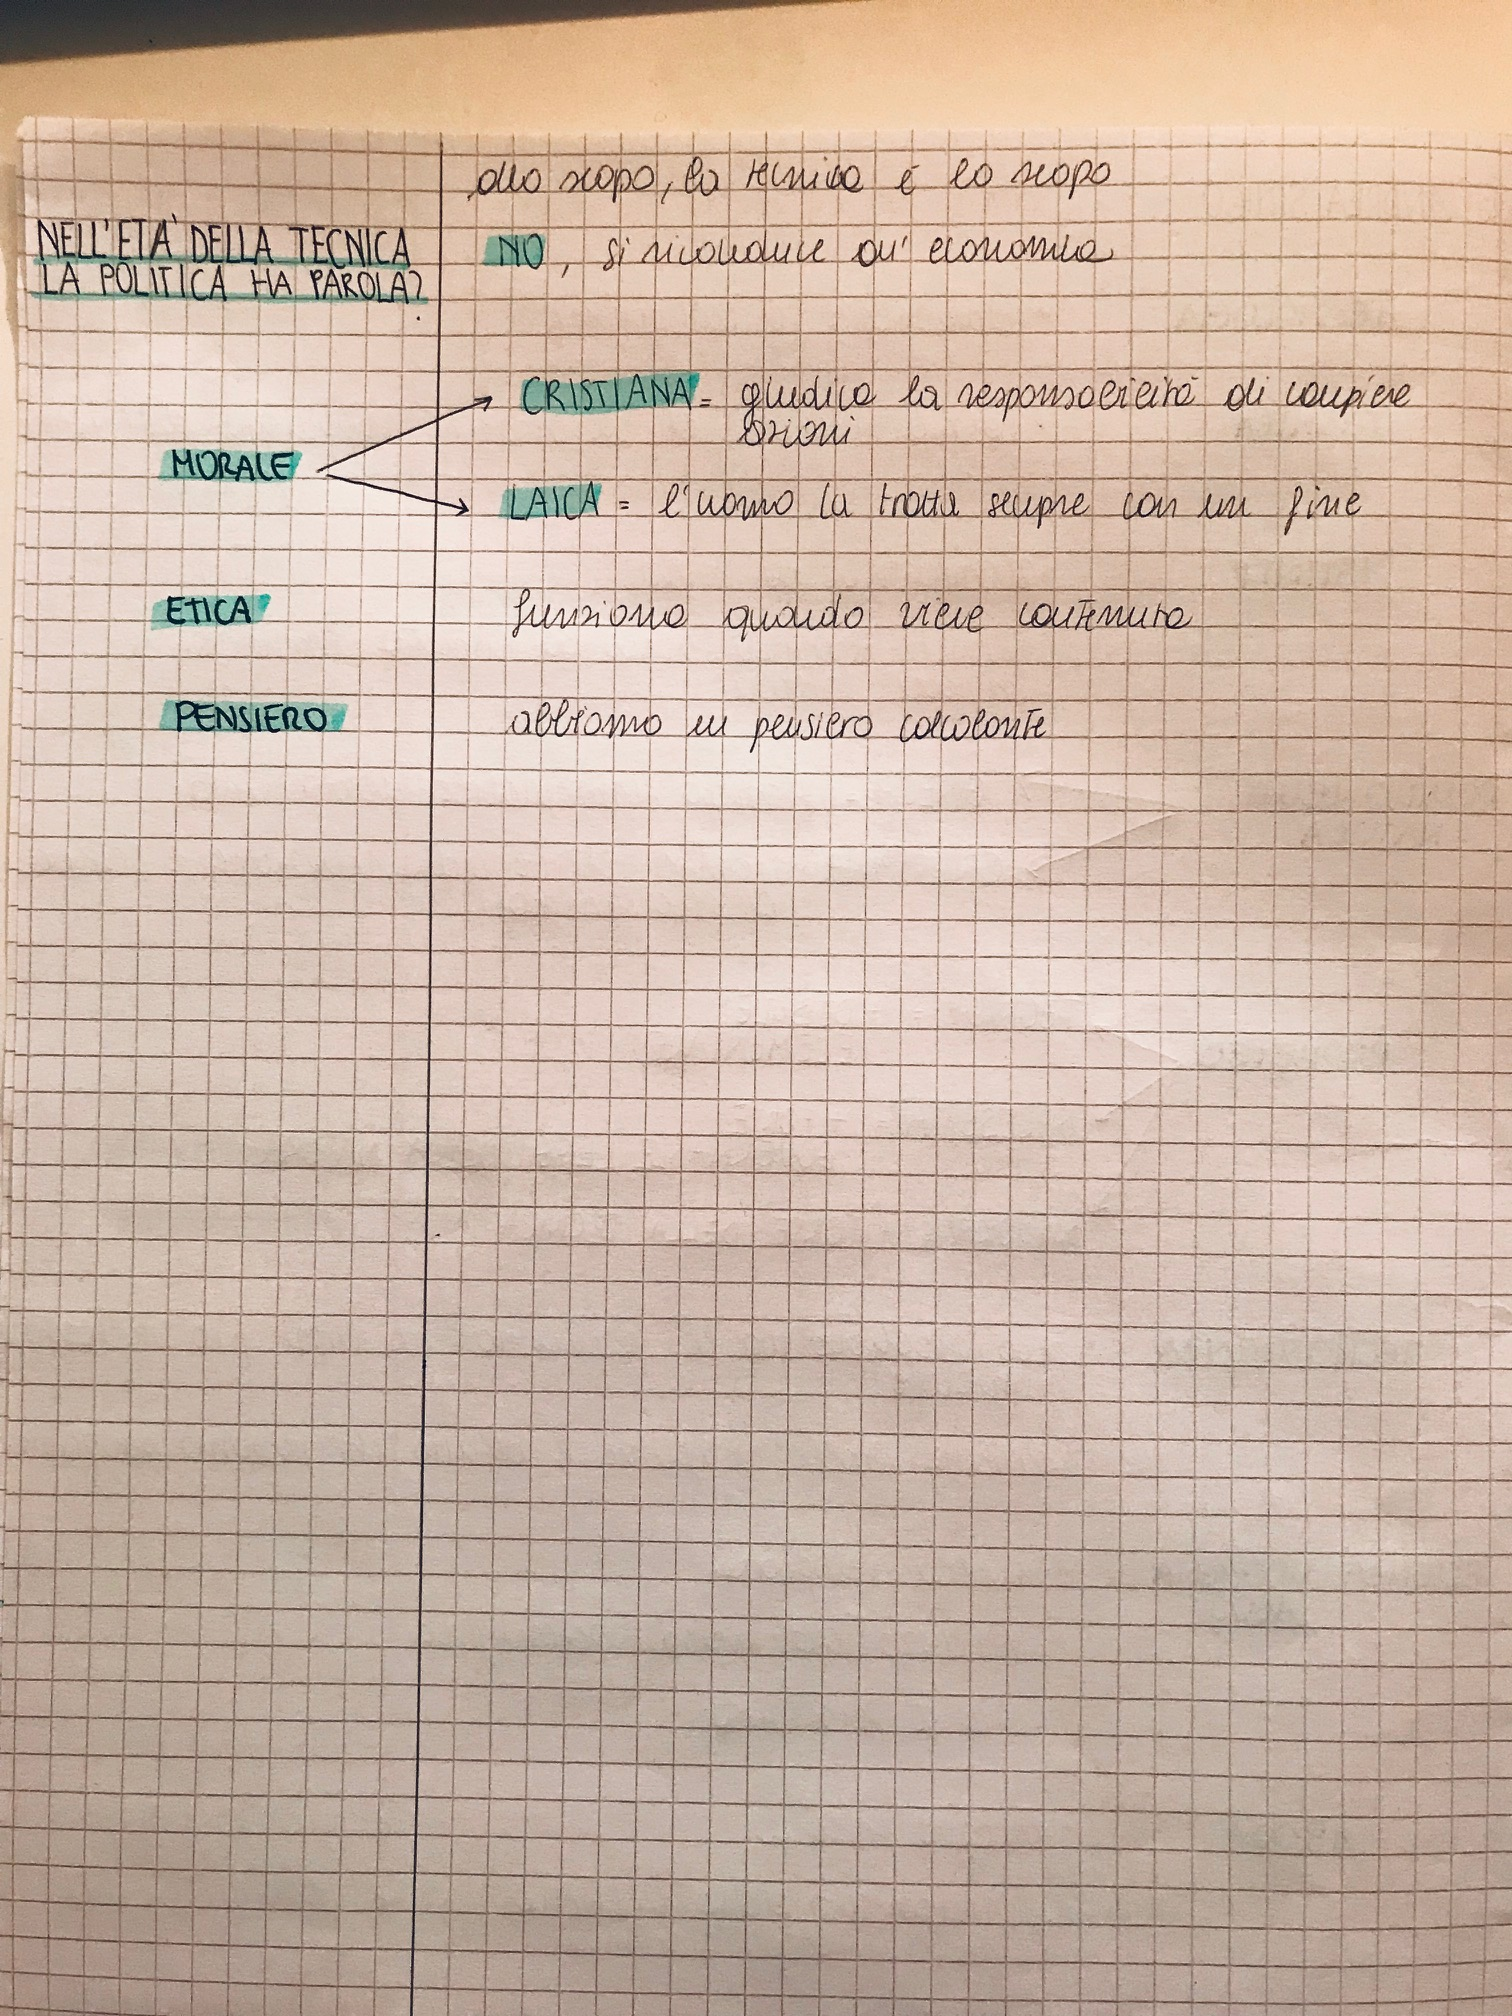 allo scopo, la tecnica è lo scopo
NELL'ETÀ DELLA TECNICA
LA POLITICA HA PAROLA?
NO, si riconduce all'economia
CRISTIANA = giudica la responsabilità di compiere
azioni
MORALE
LAICA = l'uomo la tratta sempre con un fine
ETICA
funziona quando viene contenuta
PENSIERO
abbiamo un pensiero calcolante